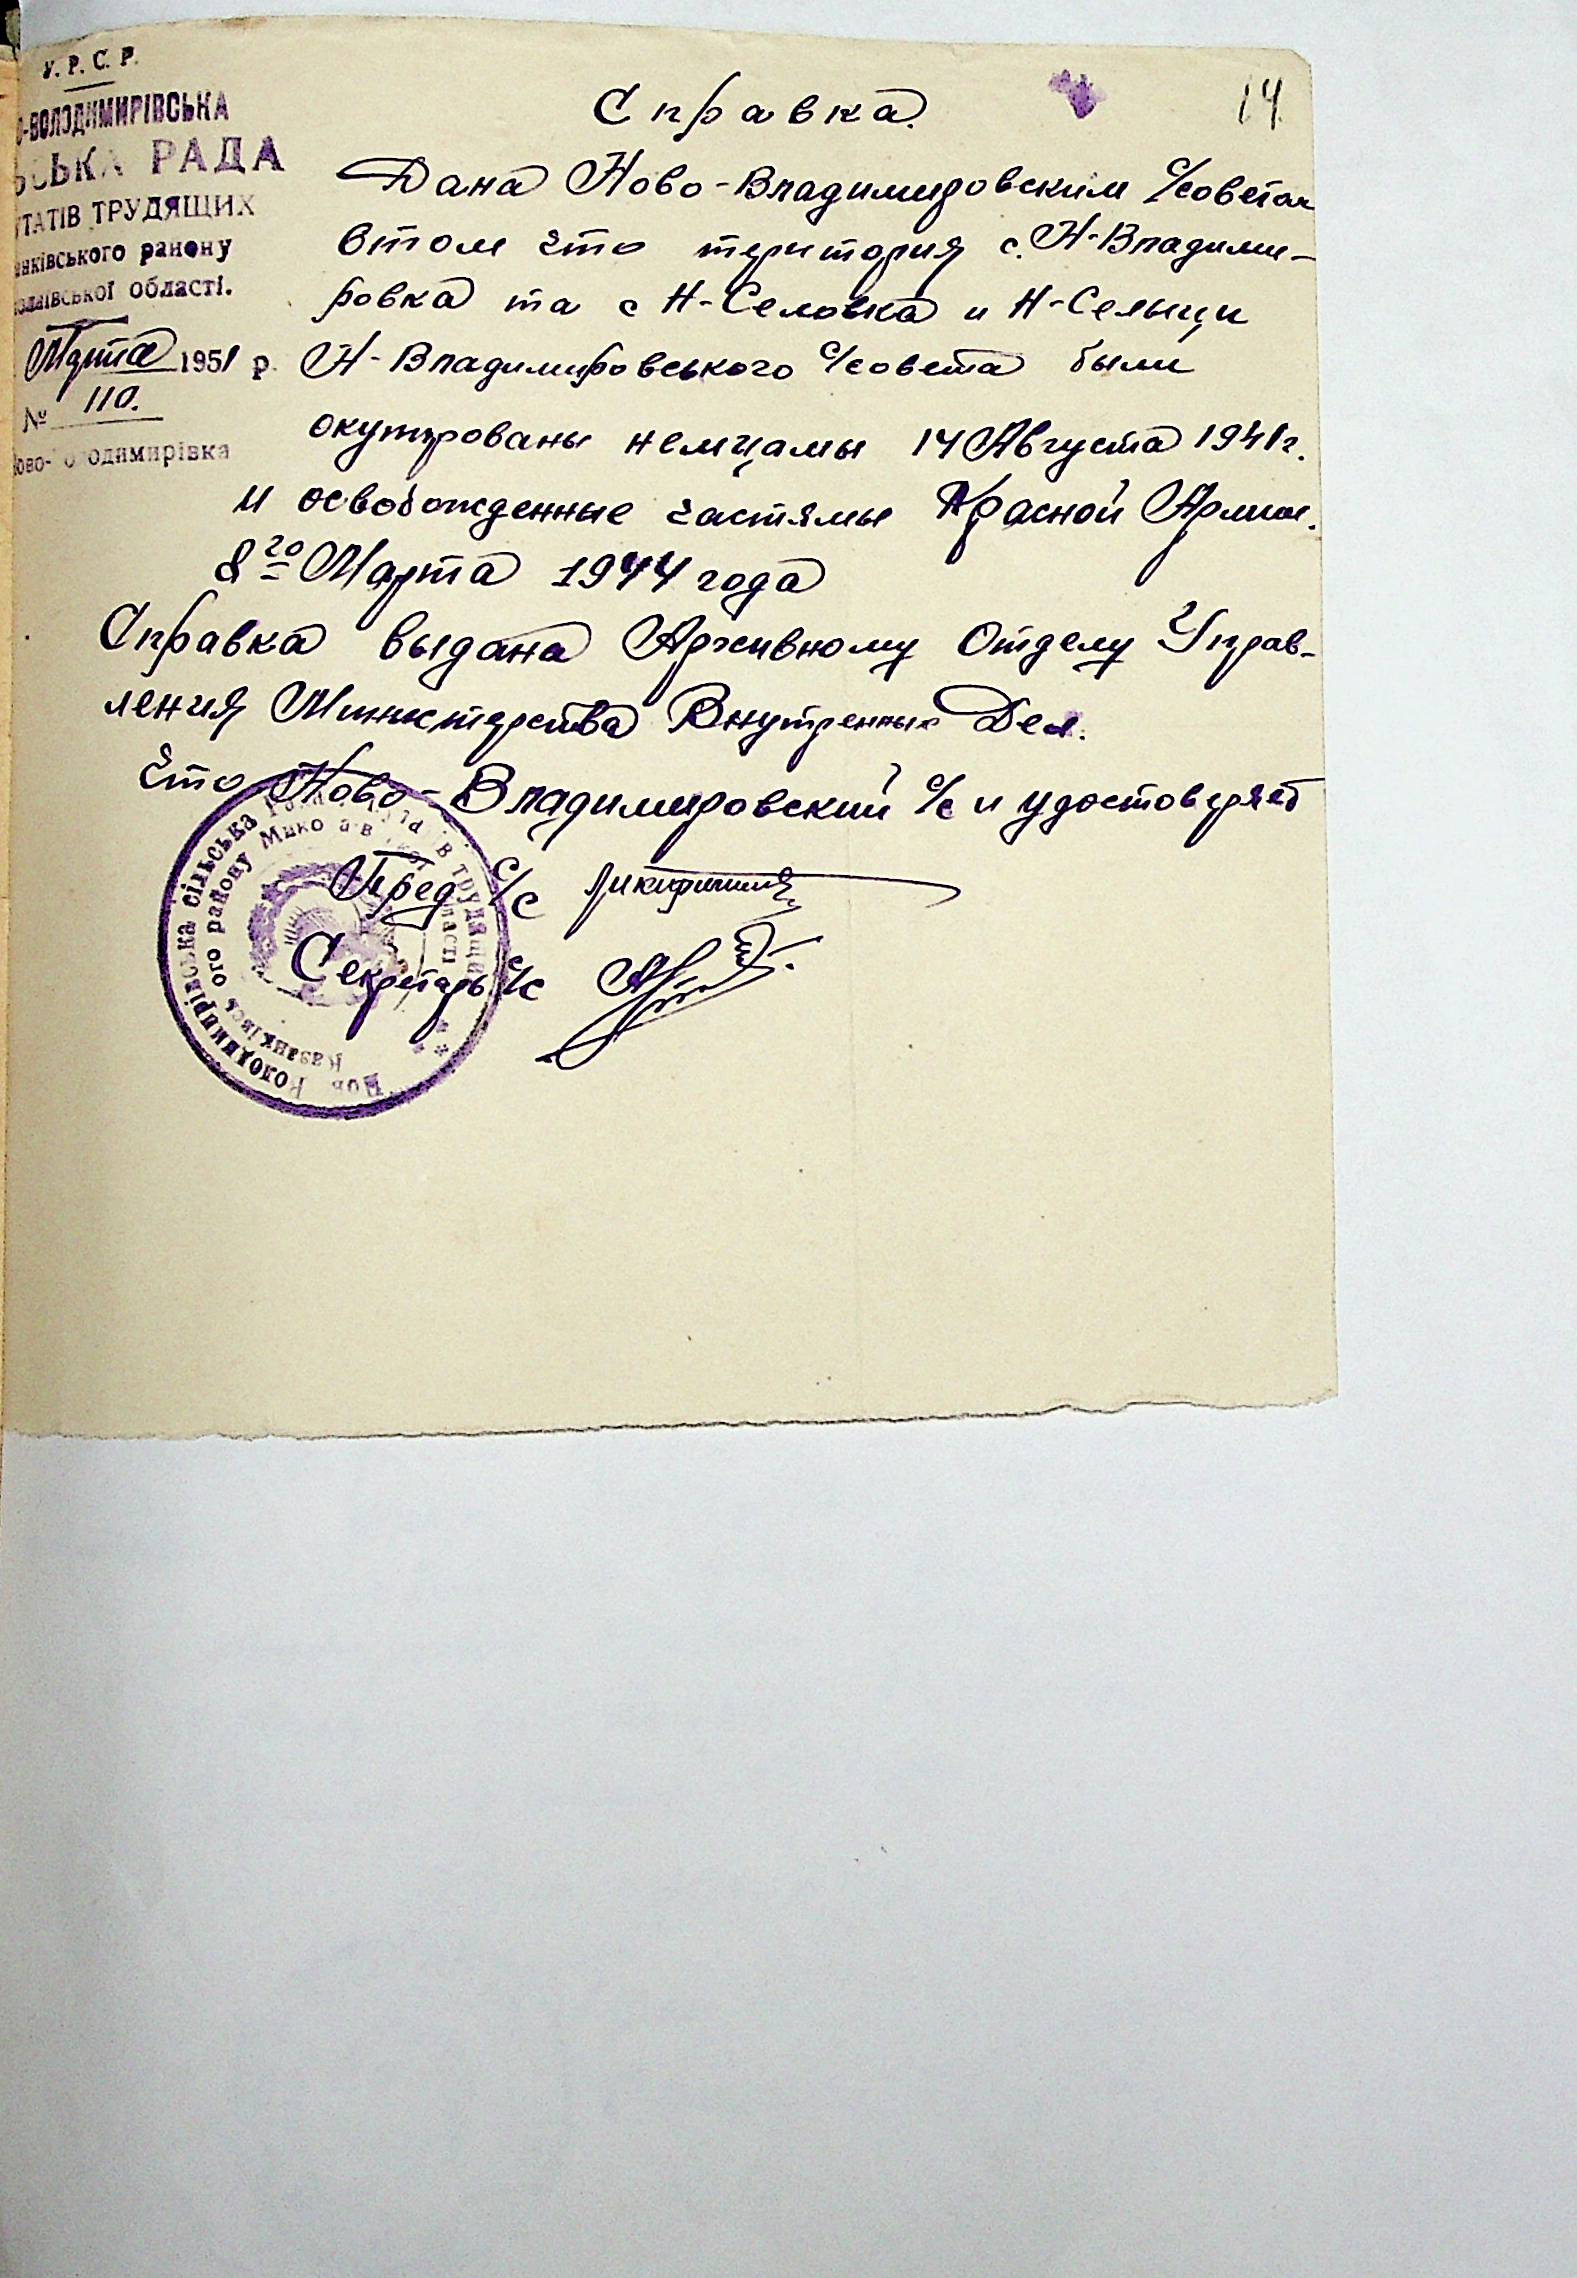 У.Р.С.Р.
О-ВОЛОДИМИРІВСЬКА
ЬСЬКА РАДА
УТАТІВ ТРУДЯЩИХ
анківського району
олаївської області.
Марта 1951 р.
№ 110.
Ново-Володимирівка
14
Справка.
Дана Ново-Владимировским с/советом
втом что територия с. Н-Владими-
ровка та с Н-Селовка и Н-Сельци
Н-Владимировського с/совета были
окупированы немцамы 14 Августа 1941 г.
и освобожденные частямы Красной Армии.
8го Марта 1944 года
Справка выдана Архивному Отделу Управ-
ления Министерства Внутренных Дел.
Что Ново-Владимировский с/с и удостоверяет
Пред с/с
Секретарь с/с
Володимирівська сільська
Казанківського району Миколаївської області